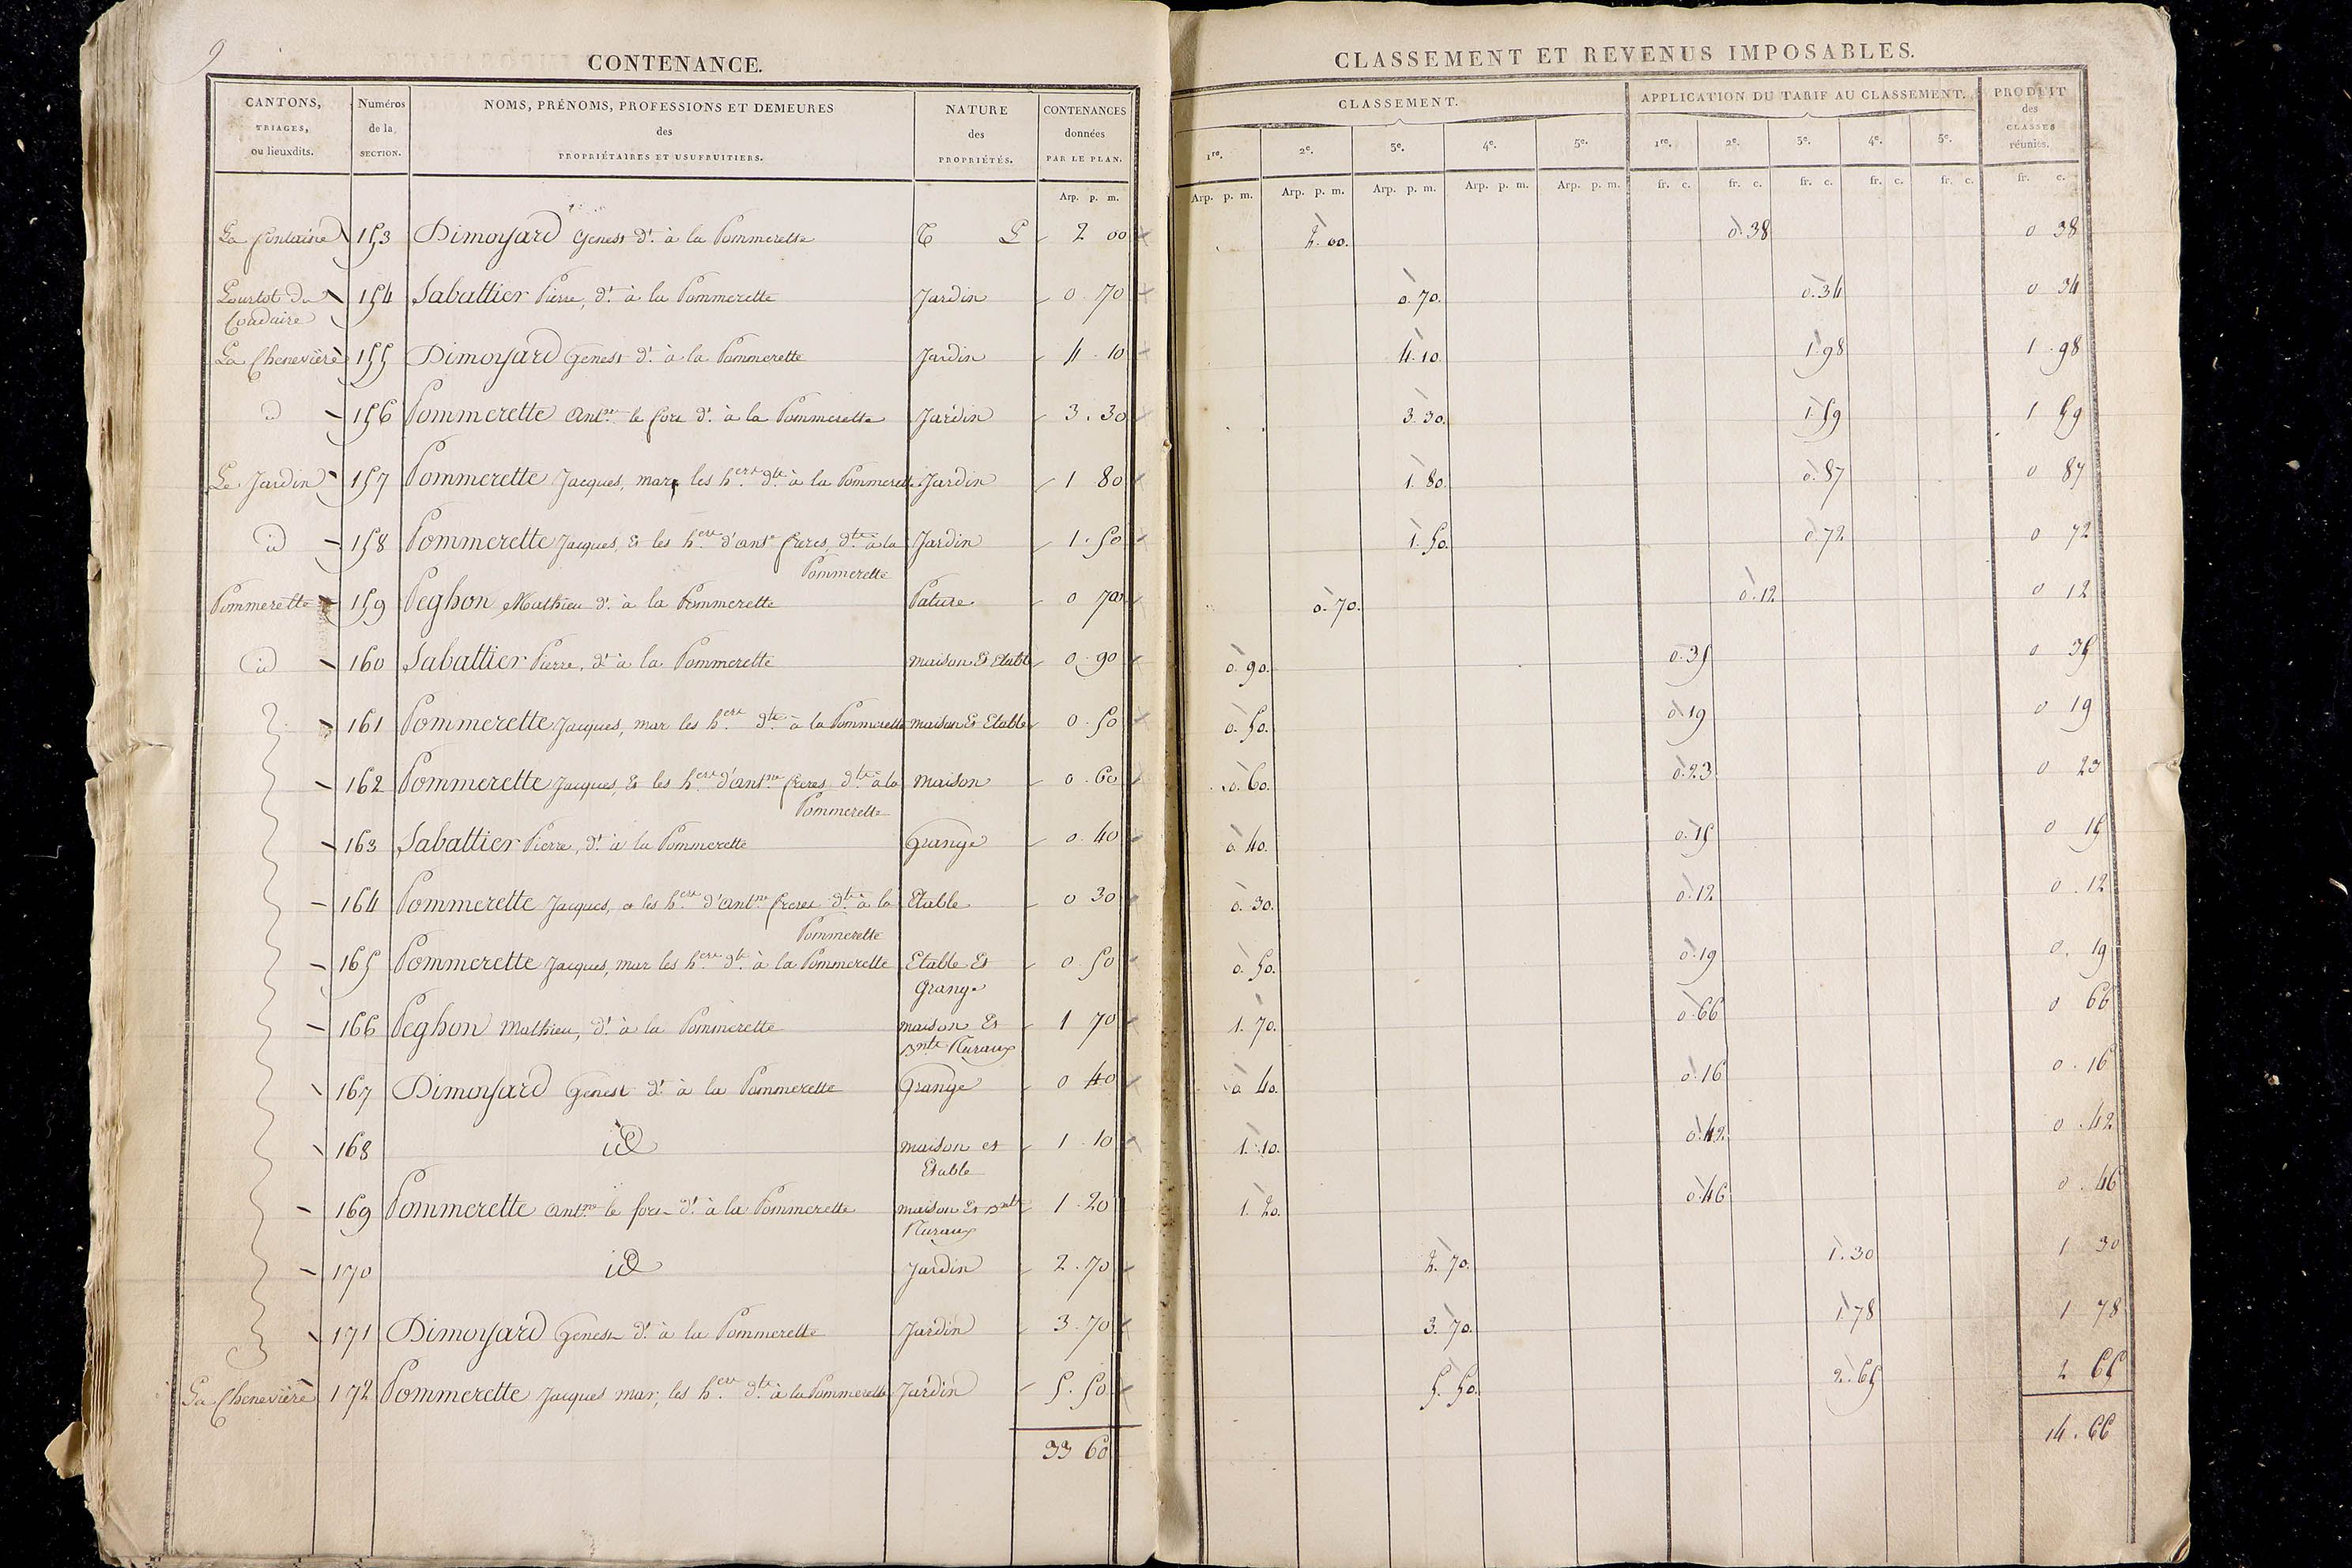 9
CONTENANCE.
CANTONS, TRIAGES, ou lieuxdits. | Numéros de la SECTION. | NOMS, PRÉNOMS, PROFESSIONS ET DEMEURES des PROPRIÉTAIRES ET USUFRUITIERS. | NATURE des PROPRIÉTÉS. | CONTENANCES données PAR LE PLAN.
Arp. p. m.
La fontaine 153 Dimoyard Genest dt. à la Pommerette T L 2 00
154 Sabattier Pierre, dt. à la Pommerette Jardin 0.70
La Chenevière 155 Dimoyard Genest dt. à la Pommerette Jardin 4.10
d 156 Pommerette Antne. le fort dt. à la Pommerette Jardin 3.30
Le Jardin 157 Pommerette Jacques, mar, les hers. dts. à la Pommerette Jardin 1 80
id 158 Pommerette Jacques, et les hers. d'Antne freres, dts. à la Jardin 1.50
Pommerette
Pommerette 159 Peghon Mathieu dt. à la Pommerette Pature 0 70
id 160 Sabattier Pierre, dt. à la Pommerette maison Et Etable 0.90
161 Pommerette Jacques, mar les hers. dts. à la Pommerette maison Et Etable 0.50
162 Pommerette Jacques, Et les hers. d'Antne. freres, dts. à la maison 0.60
Pommerette
163 Sabattier Pierre, dt. à la Pommerette Grange 0.40
164 Pommerette Jacques, et les hers. d'Antne. freres dts. à la Etable 0 30
Pommerette
165 Pommerette Jacques, mar les hers. dts. à la Pommerette Etable Et 0.50
Grange
166 Peghon Mathieu, dt. à la Pommerette maison Et 1 70
Ruraux
167 Dimoyard Genest dt. à la Pommerette Grange 0 40
168 id maison et 1.10
Etable
169 Pommerette Antne. le fort dt. à la Pommerette maison Et 1.20
Ruraux
170 id Jardin 2.70
171 Dimoyard Genest dt. à la Pommerette Jardin 3.70
La Chenevière 172 Pommerette Jacques mar, les hers. dts. à la Pommerette Jardin 5.50
33 60
CLASSEMENT ET REVENUS IMPOSABLES.
CLASSEMENT. | APPLICATION DU TARIF AU CLASSEMENT. | PRODUIT des CLASSES réunies.
1re. 2e. 3e. 4e. 5e. 1re. 2e. 3e. 4e. 5e.
Arp. p. m. Arp. p. m. Arp. p. m. Arp. p. m. Arp. p. m. fr. c. fr. c. fr. c. fr. c. fr. c. fr. c.
2.00. 0.38 0 38
0.70. 0.34 0 34
4.10 1.98 1.98
3.30. 1.59 1 59
1.80. 0.87 0 87
1.50. 0.72 0 72
0.70. 0.12 0 12
0.90. 0.35 0 35
0.50. 0.19 0 19
0.60. 0.23 0 23
0.40. 0.15 0 15
0.30. 0.12 0.12
0.50. 0.19 0.19
1.70. 0.66 0 66
0.40. 0.16 0.16
1.10. 0.42 0.42
1.20. 0.46 0.46
2.70. 1.30 1 30
3.70. 1.78 1 78
5.50. 2.65 2 65
14.66